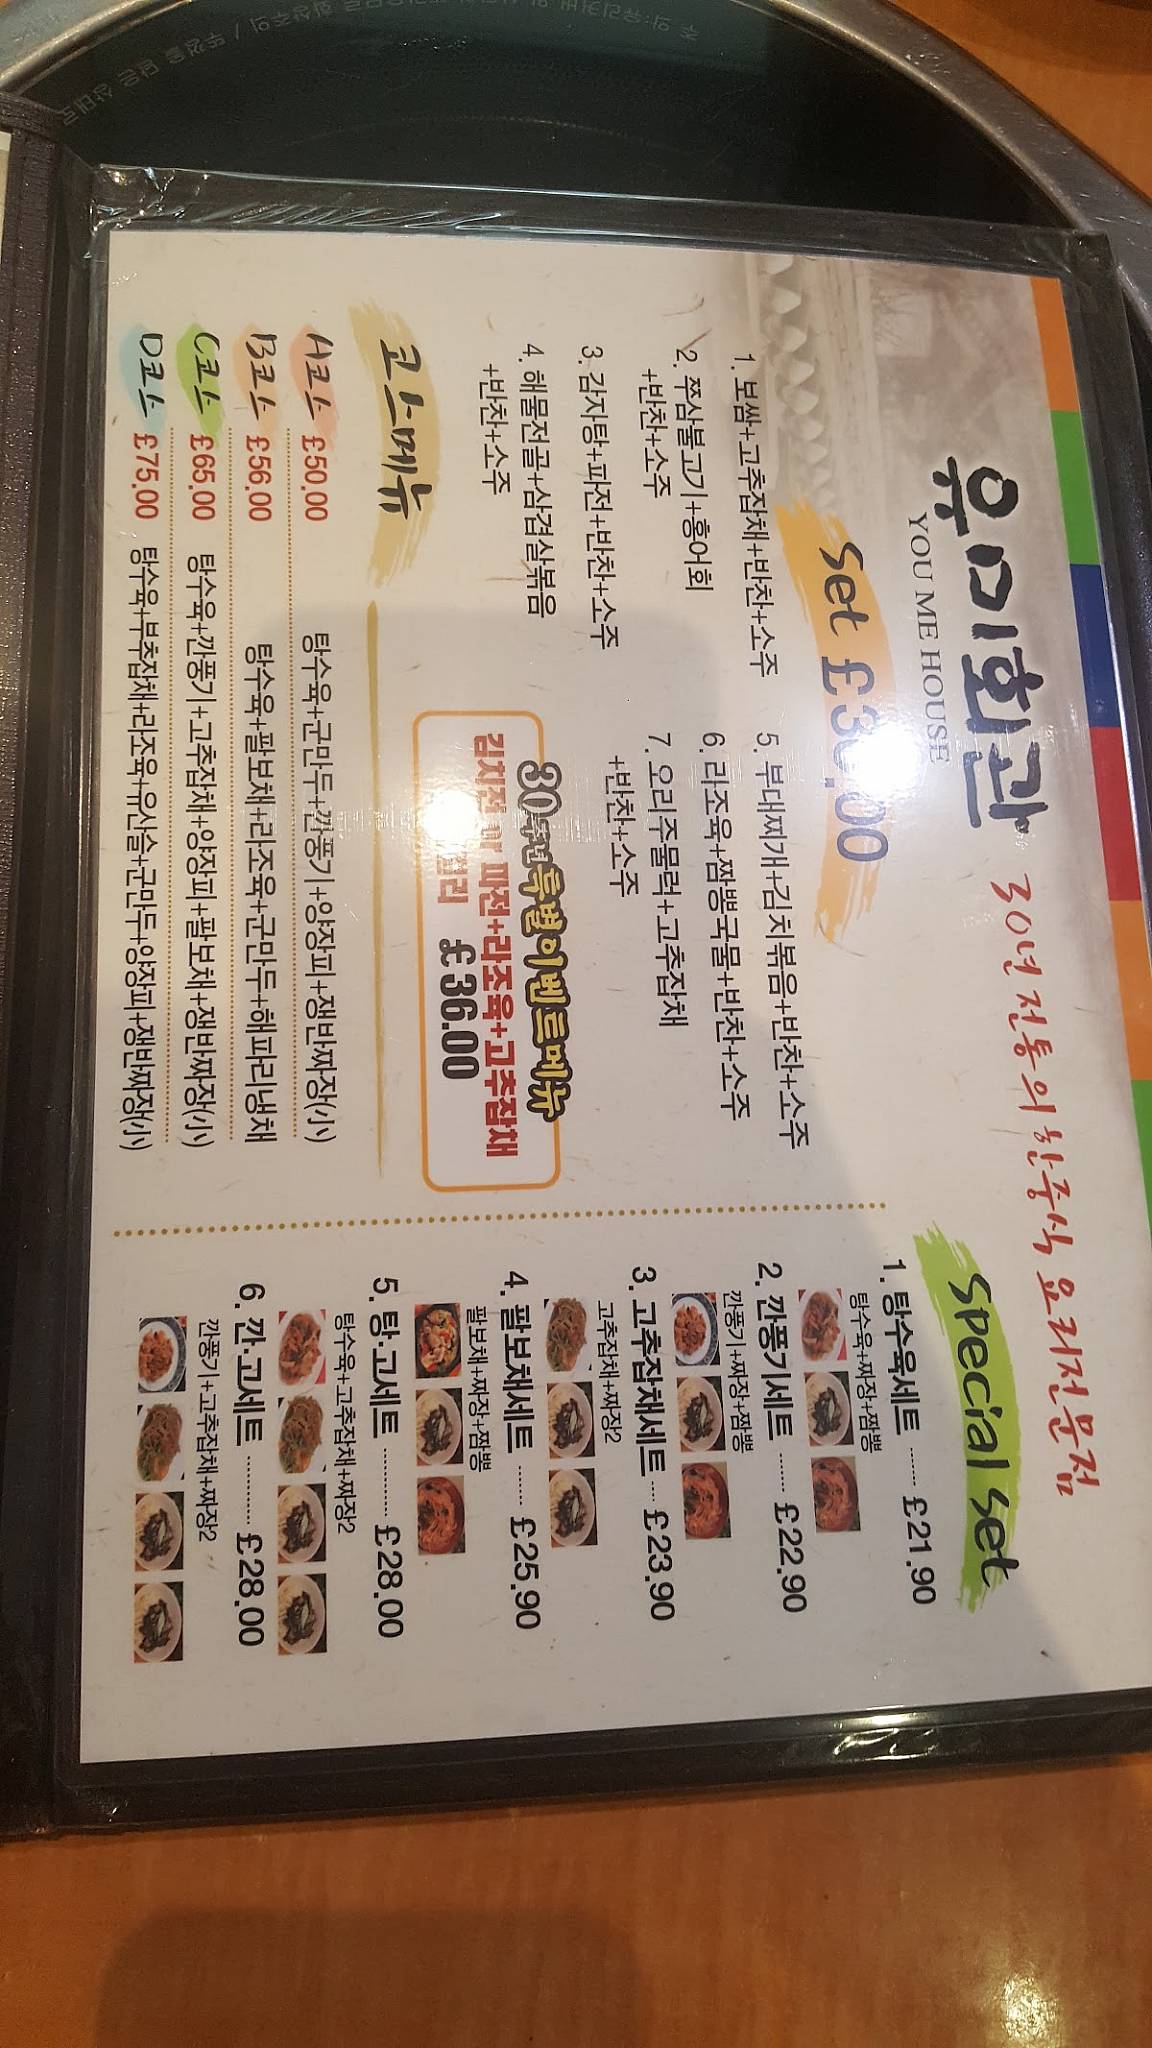 유미회관
YOU ME HOUSE
30년 전통의 한중식 요리전문점
Set £30.00
1. 보쌈+고추잡채+반찬+소주
2. 쭈삼불고기+홍어회
+반찬+소주
3. 감자탕+파전+반찬+소주
4. 해물전골+삼겹살볶음
+반찬+소주
5. 부대찌개+김치볶음+반찬+소주
6. 라조육+짬뽕국물+반찬+소주
7. 오리주물럭+고추잡채
+반찬+소주
30주년특별이벤트메뉴
김치전 or 파전+라조육+고추잡채
£36.00
코스메뉴
A코스 £50.00 탕수육+군만두+깐풍기+양장피+쟁반짜장(小)
B코스 £56.00 탕수육+팔보채+라조육+군만두+해파리냉채
C코스 £65.00 탕수육+깐풍기+고추잡채+양장피+팔보채+쟁반짜장(小)
D코스 £75.00 탕수육+부추잡채+라조육+유산슬+군만두+양장피+쟁반짜장(小)
Special Set
1. 탕수육세트 ...... £21.90
탕수육+짜장+짬뽕
2. 깐풍기세트 ....... £22.90
깐풍기+짜장+짬뽕
3. 고추잡채세트 .... £23.90
고추잡채+짜장2
4. 팔보채세트 ....... £25.90
팔보채+짜장+짬뽕
5. 탕.고세트 ............ £28.00
탕수육+고추잡채+짜장2
6. 깐.고세트 ............ £28.00
깐풍기+고추잡채+짜장2